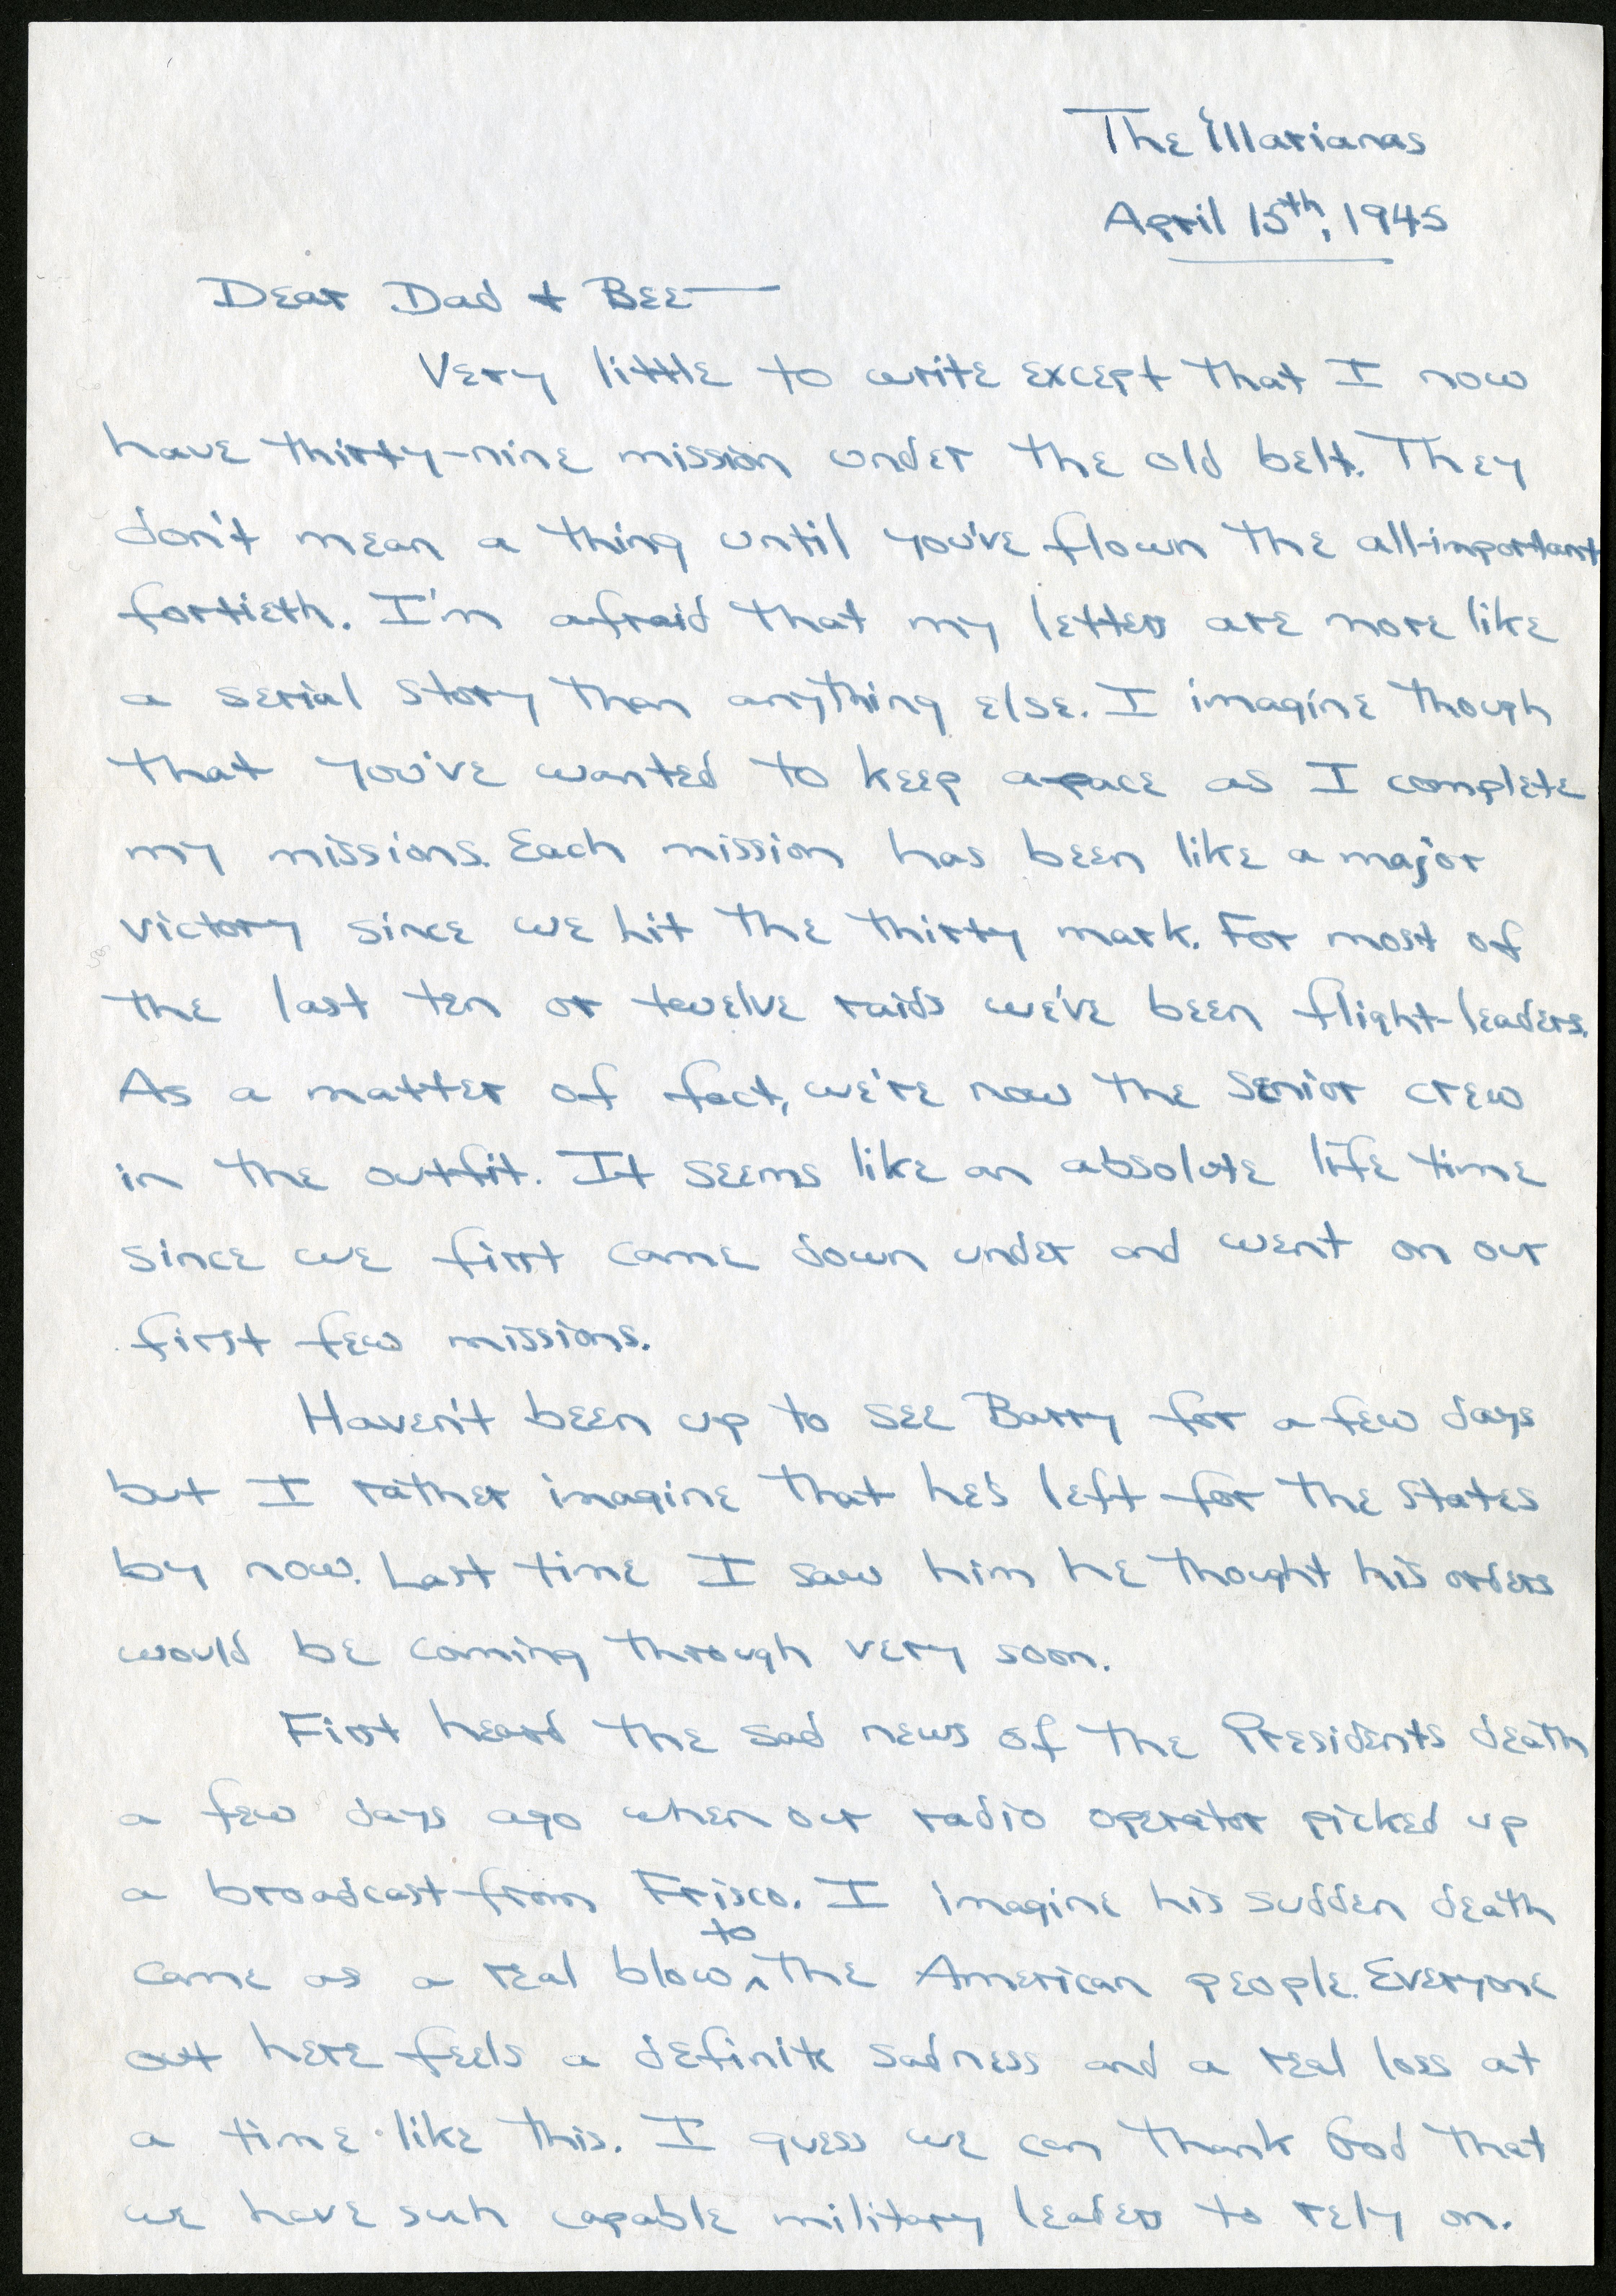 The Marianas
April 15th, 1945
Dear Dad & Bee—
Very little to write except that I now
have thirty-nine mission under the old belt. They
don't mean a thing until you've flown the all-important
fortieth. I'm afraid that my letters are more like
a serial story than anything else. I imagine though
that you've wanted to keep apace as I complete
my missions. Each mission has been like a major
victory since we hit the thirty mark. For most of
the last ten or twelve raids we've been flight-leaders.
As a matter of fact, we're now the senior crew
in the outfit. It seems like an absolute life time
since we first came down under and went on our
first few missions.
Haven't been up to see Barry for a few days
but I rather imagine that he's left for the States
by now. Last time I saw him he thought his orders
would be coming through very soon.
First heard the sad news of the Presidents death
a few days ago when our radio operator picked up
a broadcast from Frisco. I imagine his sudden death
came as a real blow to the American people. Everyone
out here feels a definite sadness and a real loss at
a time like this. I guess we can thank God that
we have such capable military leaders to rely on.